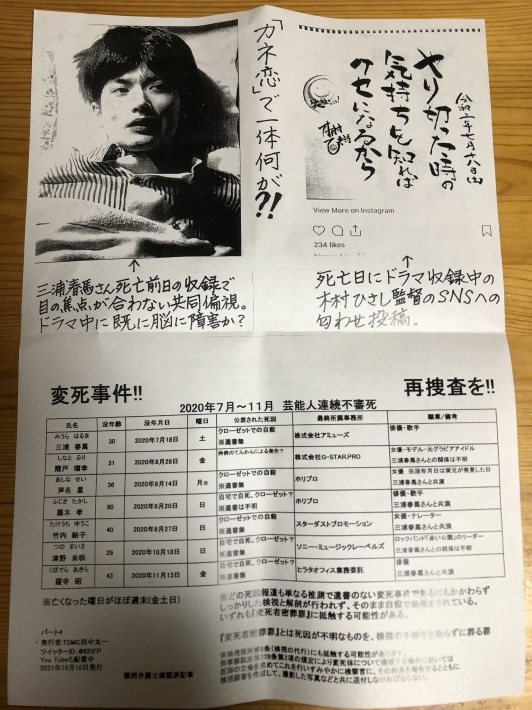 「カネ恋」で一体何が?!
令和二年七月十八日(土)
やり切った時の
気持ちを知れば
クセになるから
View More on Instagram
234 likes
三浦春馬さん死亡前日の収録で
目の焦点が合わない共同偏視。
ドラマ中に既に脳に障害か？
死亡日にドラマ収録中の
木村ひさし監督のSNSへの
匂わせ投稿。
変死事件!!
再捜査を!!
2020年7月～11月 芸能人連続不審死
氏名 没年齢 没年月日 曜日 公表された死因 最終所属事務所 職業/備考
みうら はるま
三浦 春馬 30 2020年7月18日 土 クローゼットでの自殺 ※遺書無 株式会社アミューズ 俳優・歌手
しなと るり
階戸 瑠李 31 2020年8月28日 金 持病のてんかんによる発作? 株式会社G-STAR.PRO 女優・モデル・元グラビアアイドル 三浦春馬さんとの関係は不明
あしな せい
芦名 星 36 2020年9月14日 月※ クローゼットでの自殺 ※遺書無 ホリプロ 女優 ※没年月日は実兄が発見した日 三浦春馬さんと共演
ふじき たかし
藤木 孝 80 2020年9月20日 日 自宅で自死、クローゼット? ※遺書は不明 ホリプロ 俳優・歌手 三浦春馬さんと共演
たけうち ゆうこ
竹内 結子 40 2020年9月27日 日 クローゼットでの自殺 ※遺書無 スターダストプロモーション 女優・ナレーター 三浦春馬さんと共演
つの まいさ
津野 米咲 29 2020年10月18日 日 自宅で自死、クローゼット? ※遺書無 ソニー・ミュージックレーベルズ ロックバンド「赤い公園」のリーダー 三浦春馬さんとの関係は不明
くぼでら あきら
窪寺 昭 43 2020年11月13日 金 自宅で自死、クローゼット? ※遺書無 ヒラタオフィス業務委託 俳優 三浦春馬さんと共演
※亡くなった曜日がほぼ週末(金土日)
※どの死因報道も単なる推測で遺書のない変死事件であるにもかかわらず
しっかりした検視と解剖が行われず、そのまま自殺で処理をされている。
いずれも『変死者密葬罪』に抵触する可能性がある。
『変死者密葬罪』とは死因が不明なものを、検視の手続きを取らずに葬る罪
パート4
発行者:TSMC田中太一
ツイッターID:@62IFP
You Tubeも配信中
2021年10月10日発行
顧問弁護士確認済記事